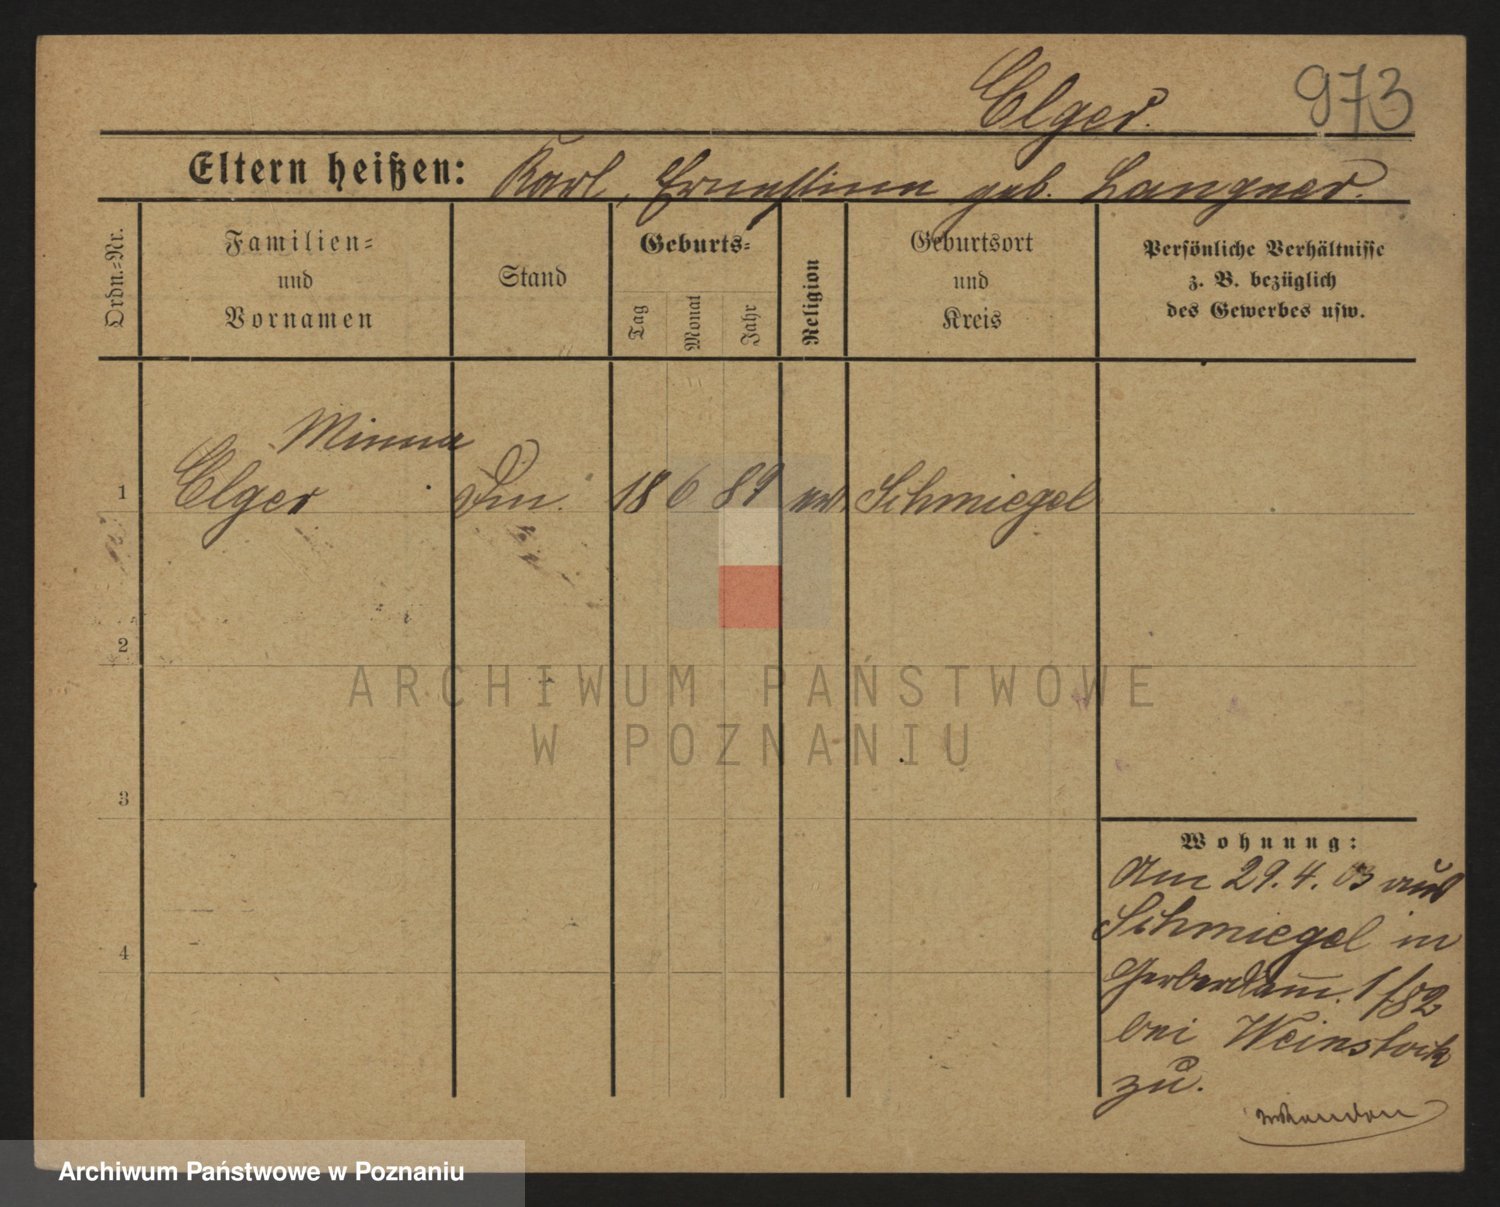 Elger. 973
Eltern heißen: Karl, Ernestine geb. Langner.
Ordn.-Nr.
Familien-
und
Vornamen
Stand
Geburts-
Tag
Monat
Jahr
Religion
Geburtsort
und
Kreis
Persönliche Verhältnisse
z. B. bezüglich
des Gewerbes usw.
Minna
1 Elger 18 6 89 Schmiegel
2
3
4
Wohnung:
Am 29.4.03 aus
Schmiegel in
Gerberdam̅. 1/82
bei Weinstock
zu.
ARCHIWUM PAŃSTWOWE
W POZNANIU
Archiwum Państwowe w Poznaniu